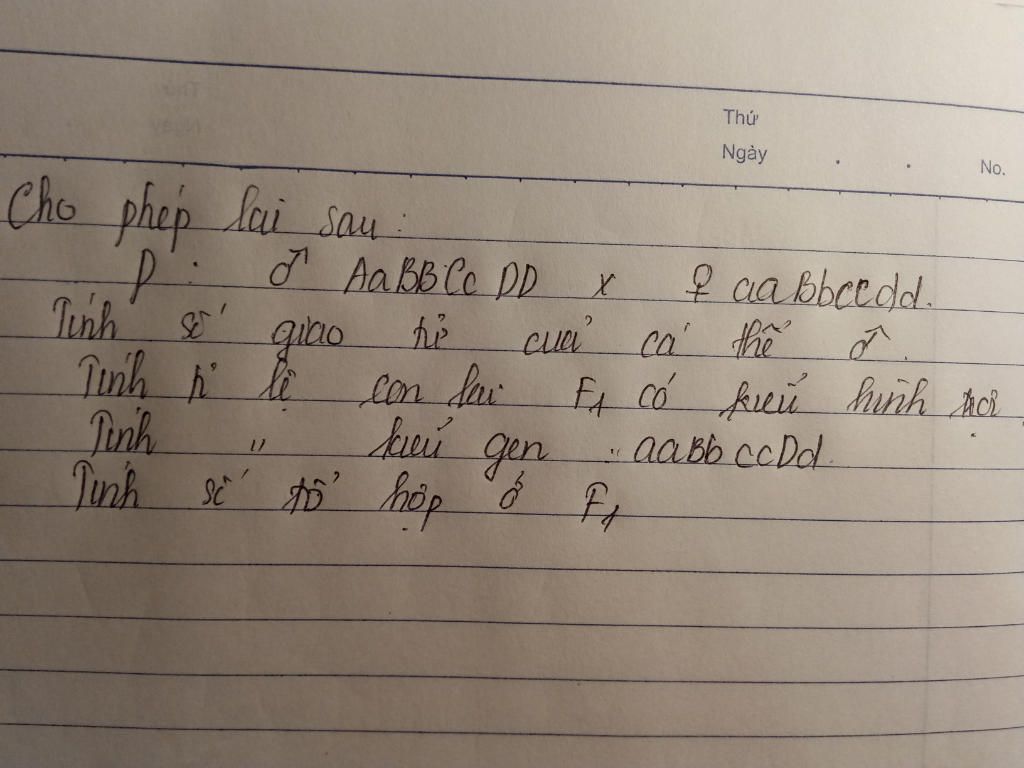 Thứ
Ngày . . No.
Cho phép lai sau:
P: ♂ AaBBCcDD x ♀ aaBbccdd.
Tính số giao tử của cá thể ♂.
Tính tỉ lệ con lai F1 có kiểu hình
Tính " kiểu gen " aaBbccDd.
Tính số tổ hợp ở F1